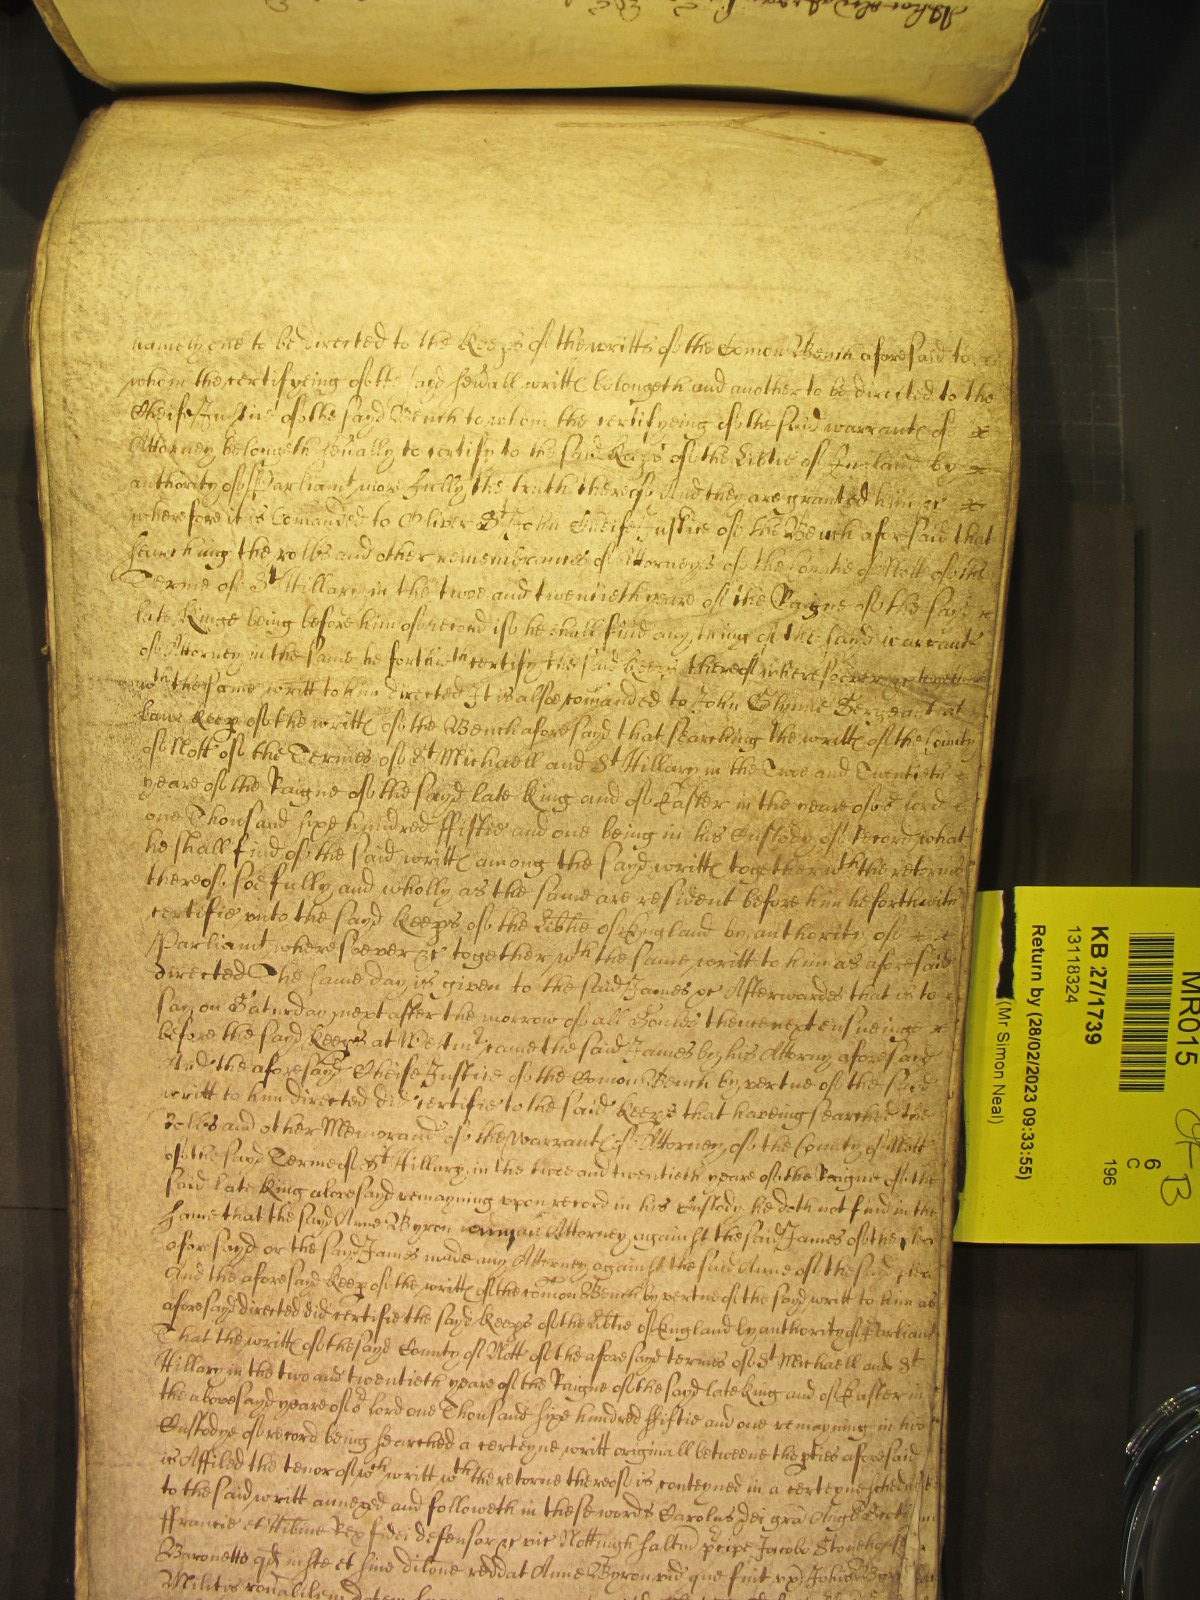 namely one to be directed to the Keeps of the writts of the Comon Bench aforesaid to
whom the certifyeing of the sayd sevall writts belongeth and another to be directed to the
Cheife Justice of the sayd Bench to whom the certifyeing of the said warrants of
Attorney belongeth sevally to certify to the said Keeps of the Libtie of England by
authority of Parliamt more fully the truth thereof And they are granted him &c
wherefore it is Comanded to Oliver St John Cheife Justice of the Bench aforesaid that
searching the rolls and other remembrances of Attorneyes of the Countie of Nott of the
Terme of St Hillary in the twoe and twentieth yeare of the Raigne of the sayd
late Kinge being before him of record if he shall find any thing of the sayd warrants
of Attorney in the same he forthwth certify the said Keeps thereof wheresoever &c together
wth the same writt to him directed It is alsoe comanded to John Glynne Sergeant at
Lawe Keep of the writts of the Bench aforesayd that searching the writts of the County
of Nott of the Termes of St Michaell and St Hillary in the Twoe and Twentieth
yeare of the Raigne of the sayd late King and of Easter in the yeare of o lord
one Thousand sixe hundred ffiftie and one being in his Custody of record what
he shall find of the said writts among the sayd writts together wth the retorne
thereof soe fully and wholly as the same are resident before him he forthwith
certifie unto the sayd Keeps of the Libtie of England by authority of
Parliamt wheresoever &c together wth the same writt to him as aforesaid
directed The same Day is given to the said James &c Afterwardes that is to
say on Saturday next after the morrow of all Soules thence next ensueinge
before the sayd Keeps at Westmr came the said James by his Attorny aforesaid
And the aforesayd Cheife Justice of the Comon Bench by vertue of the said
writt to him directed did certifie to the said Keeps that haveing searched the
rolls and other Memorand of the Warrants of Attorney of the County of Nott
of the sayd Terme of St Hillary in the twoe and twentieth yeare of the Raigne of the
said late King aforesayd remayning upon record in his Custody he doth not find in the
same that the sayd Anne Byron any Attorney against the said James of the plea
aforesayd or the sayd James made any Attorney against the said Anne of the said plea
And the aforesayd Keep of the writts of the comon Bench by vertue of the sayd writt to him as
aforesayd directed did certifie the sayd Keeps of the Libtie of England by authority of Parliamt
That the writts of the sayd County of Nott of the aforesayd termes of St Michaell and St
Hillary in the two and twentieth yeare of the Raigne of the sayd late King and of Easter in
the abovesayd yeare of o lord one Thousand sixe hundred ffiftie and one remayning in his
Custodye of record being searched a certeyne writt originall betweene the pties aforesaid
is Affiled the tenor of wch writt wth the retorne thereof is conteyned in a certeyne schedule
to the said writt annexed and followeth in these words Carolus Dei gra Angl Scot
ffrancie et Hibnie Rex fidei defensor &c vic Nottingh saltm pcipe Jacobo Stonehouse
Baronetto qd iuste et sine dilone reddat Anne Byron vid que fuit ux Johis Byron
Militis ronabilem dotem
KB 27/1739
13118324
Return by (28/02/2023 09:33:55)
(Mr Simon Neal)
MR015
6
C
196